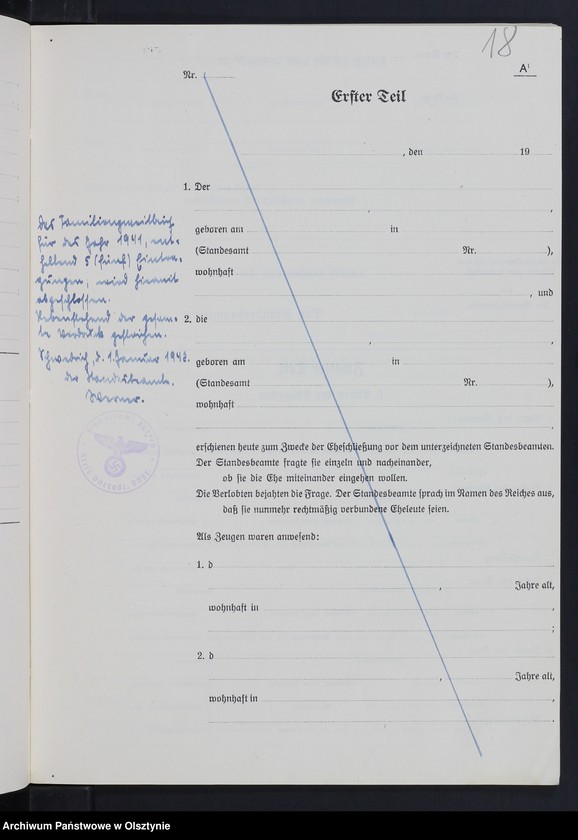 18
A¹
Nr.
Erster Teil
, den 19
1. Der
,
,
geboren am in
(Standesamt Nr. ),
wohnhaft
, und
2. die
,
,
geboren am in
(Standesamt Nr. ),
wohnhaft
.
erschienen heute zum Zwecke der Eheschließung vor dem unterzeichneten Standesbeamten.
Der Standesbeamte fragte sie einzeln und nacheinander,
ob sie die Ehe miteinander eingehen wollen.
Die Verlobten bejahten die Frage. Der Standesbeamte sprach im Namen des Reiches aus,
daß sie nunmehr rechtmäßig verbundene Eheleute seien.
Als Zeugen waren anwesend:
1. d
, Jahre alt,
wohnhaft in ,
;
2. d
, Jahre alt,
wohnhaft in ,
.
für das Jahr 1941, ent-
haltend 5 (fünf) Eintra-
gungen, wird hiermit
abgeschlossen.
Nebenstehend der gesam-
te Vordruck gestrichen.
d. 1. Januar 194
der Standesbeamte.
Werner.
Archiwum Państwowe w Olsztynie